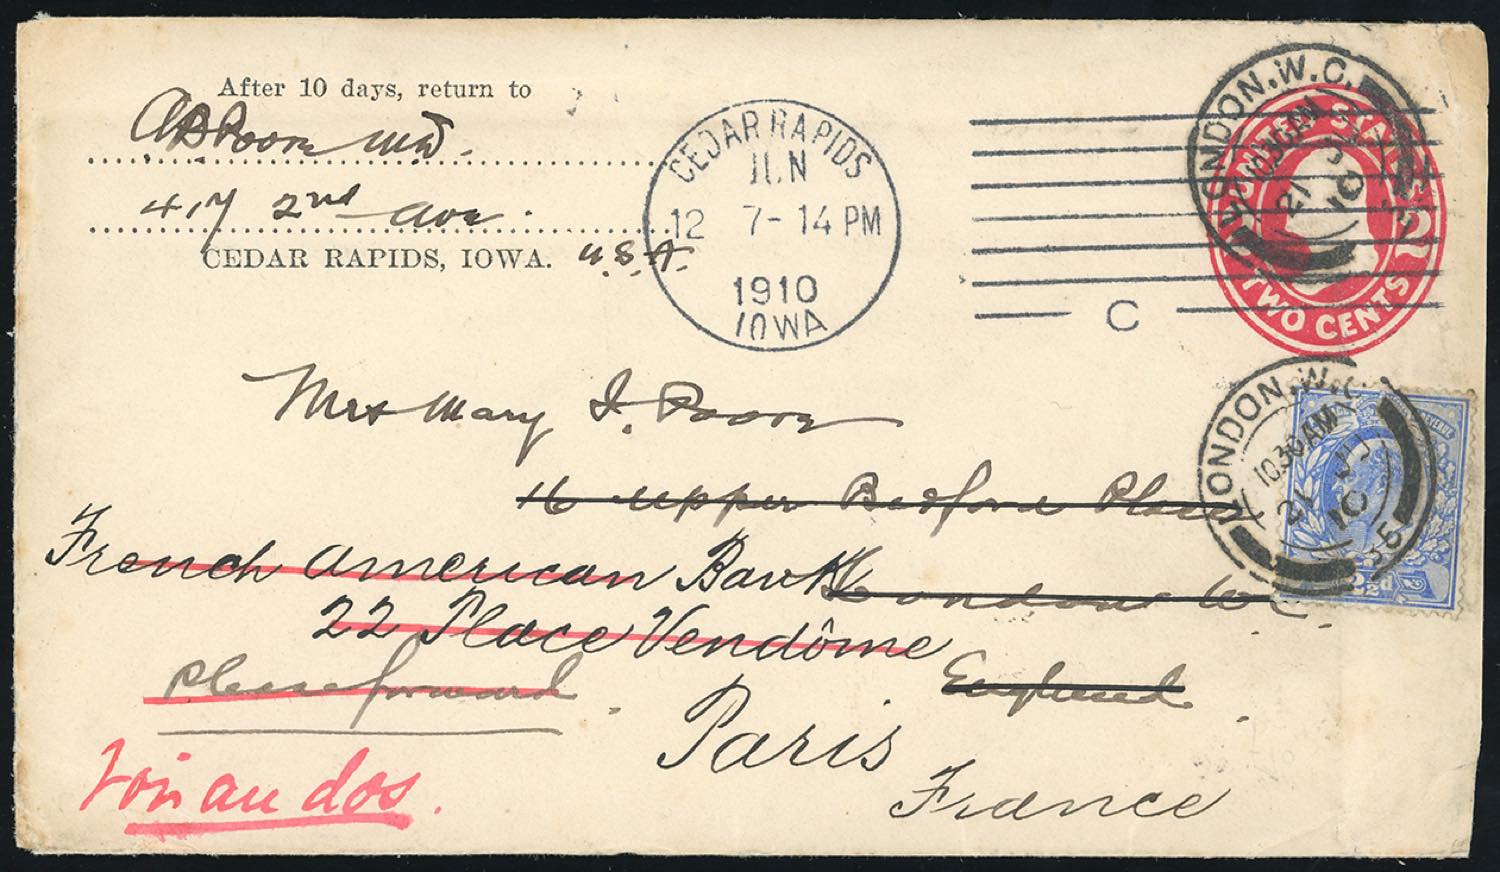 After 10 days, return to
A B Poore MD.
417 2nd Ave.
CEDAR RAPIDS, IOWA. U.S.A.
CEDAR RAPIDS
JUN
12 7-14 PM
1910
IOWA
C
LONDON.W.C.
10.30AM
21 JU
10
35
UNITED STATES
2
TWO CENTS
LONDON.W.C.
10.30AM
21 JU
10
35
Mrs Mary I. Poore
16 Upper Bedford Place
London W.C.
England
French American Bank
22 Place Vendôme
Please forward
Paris
France
Voir au dos.